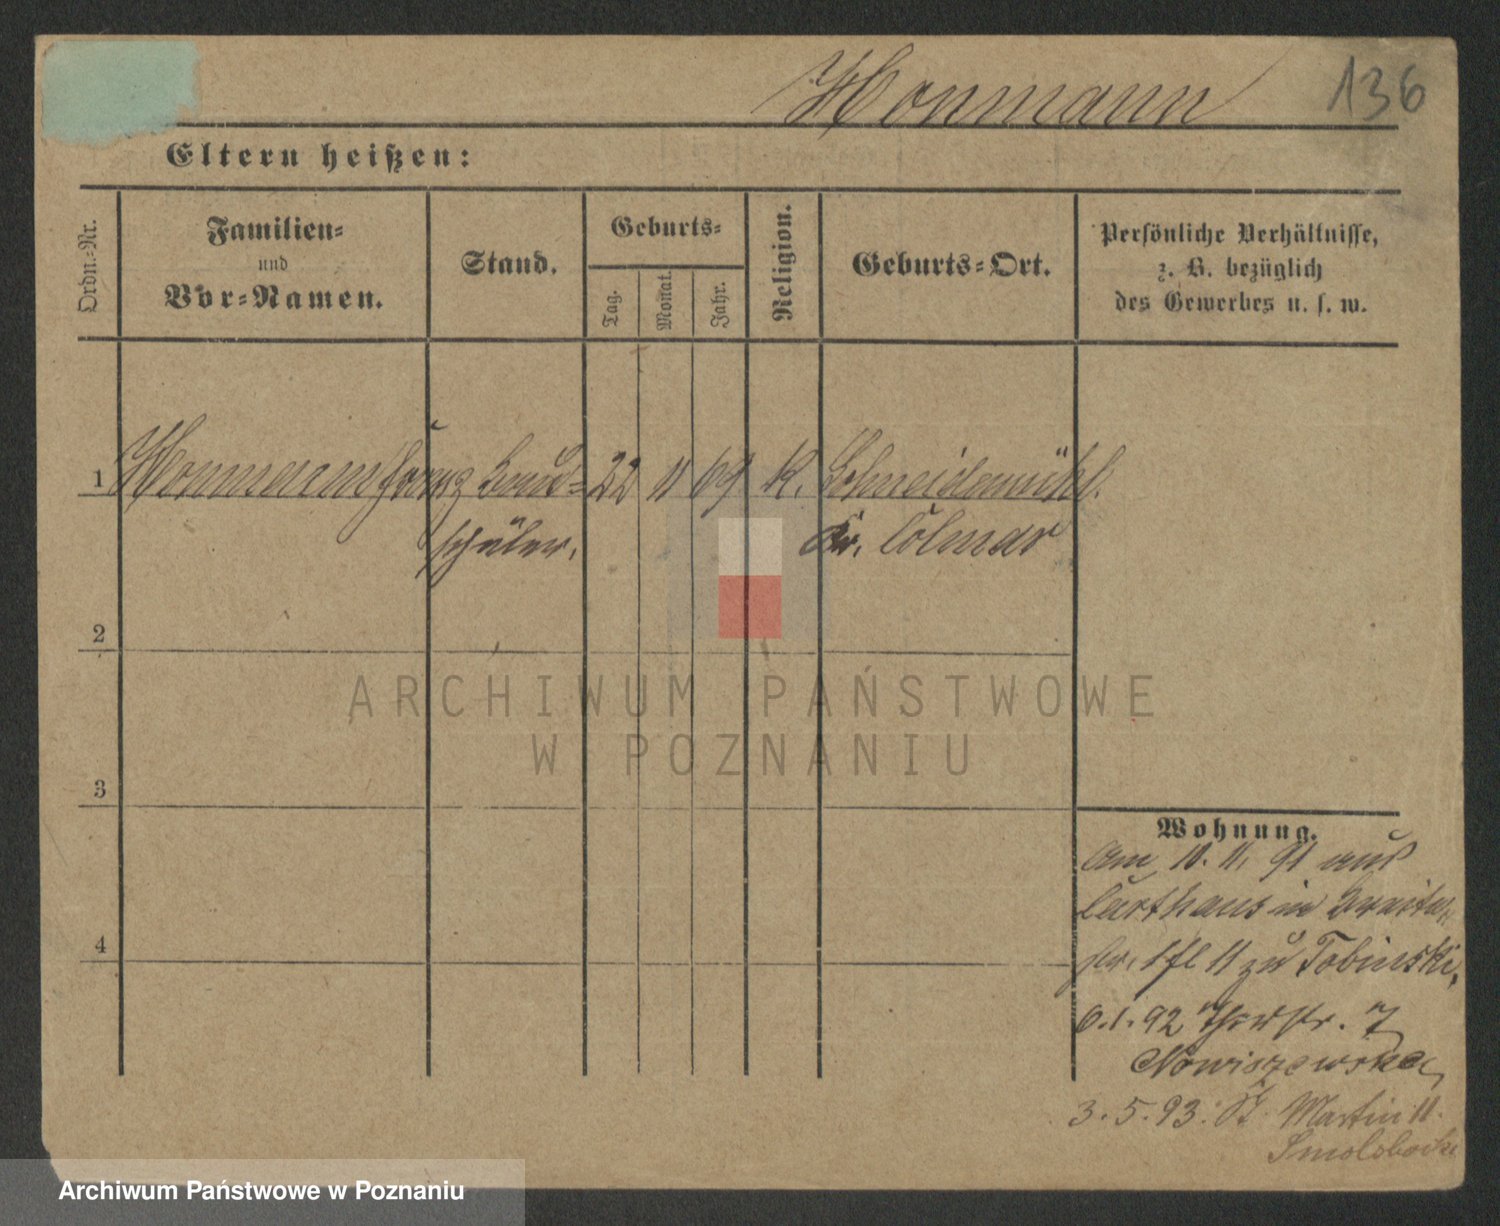 Honmann 136
Eltern heißen:
Ordn.-Nr.
Familien-
und
Vor-Namen.
Stand.
Geburts-
Tag.
Monat.
Jahr.
Religion.
Geburts-Ort.
Persönliche Verhältnisse,
z. B. bezüglich
des Gewerbes u. s. w.
1 Honmann Franz Bau= 22 11 69 K. Schneidemühl.
schüler. Kr. Colmar
2
3
4
Wohnung.
Am 10. 11. 91 aus
Carthaus in Breite
str. 1 II zu Tobinski,
6.1.92 7
Nowiszewska
3.5.93. St Martin 11.
ARCHIWUM PAŃSTWOWE
W POZNANIU
Archiwum Państwowe w Poznaniu